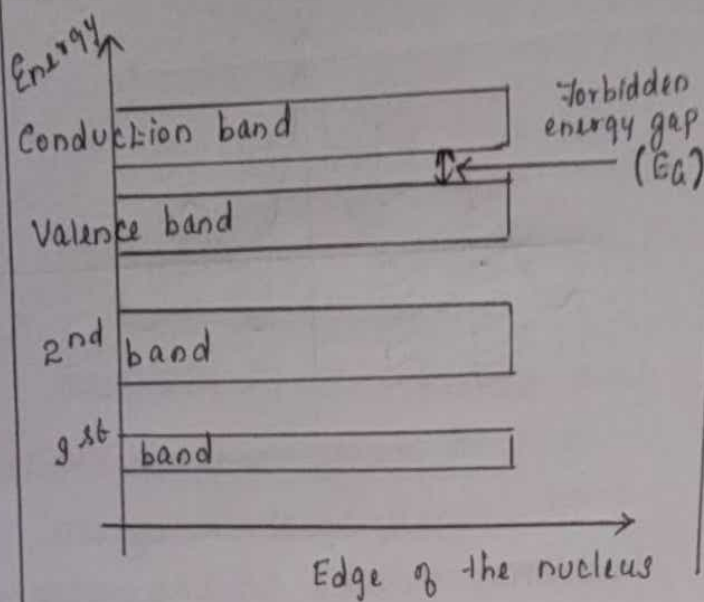 Energy
Conduction band
Forbidden
energy gap
(EG)
Valence band
2nd band
1st band
Edge of the nucleus